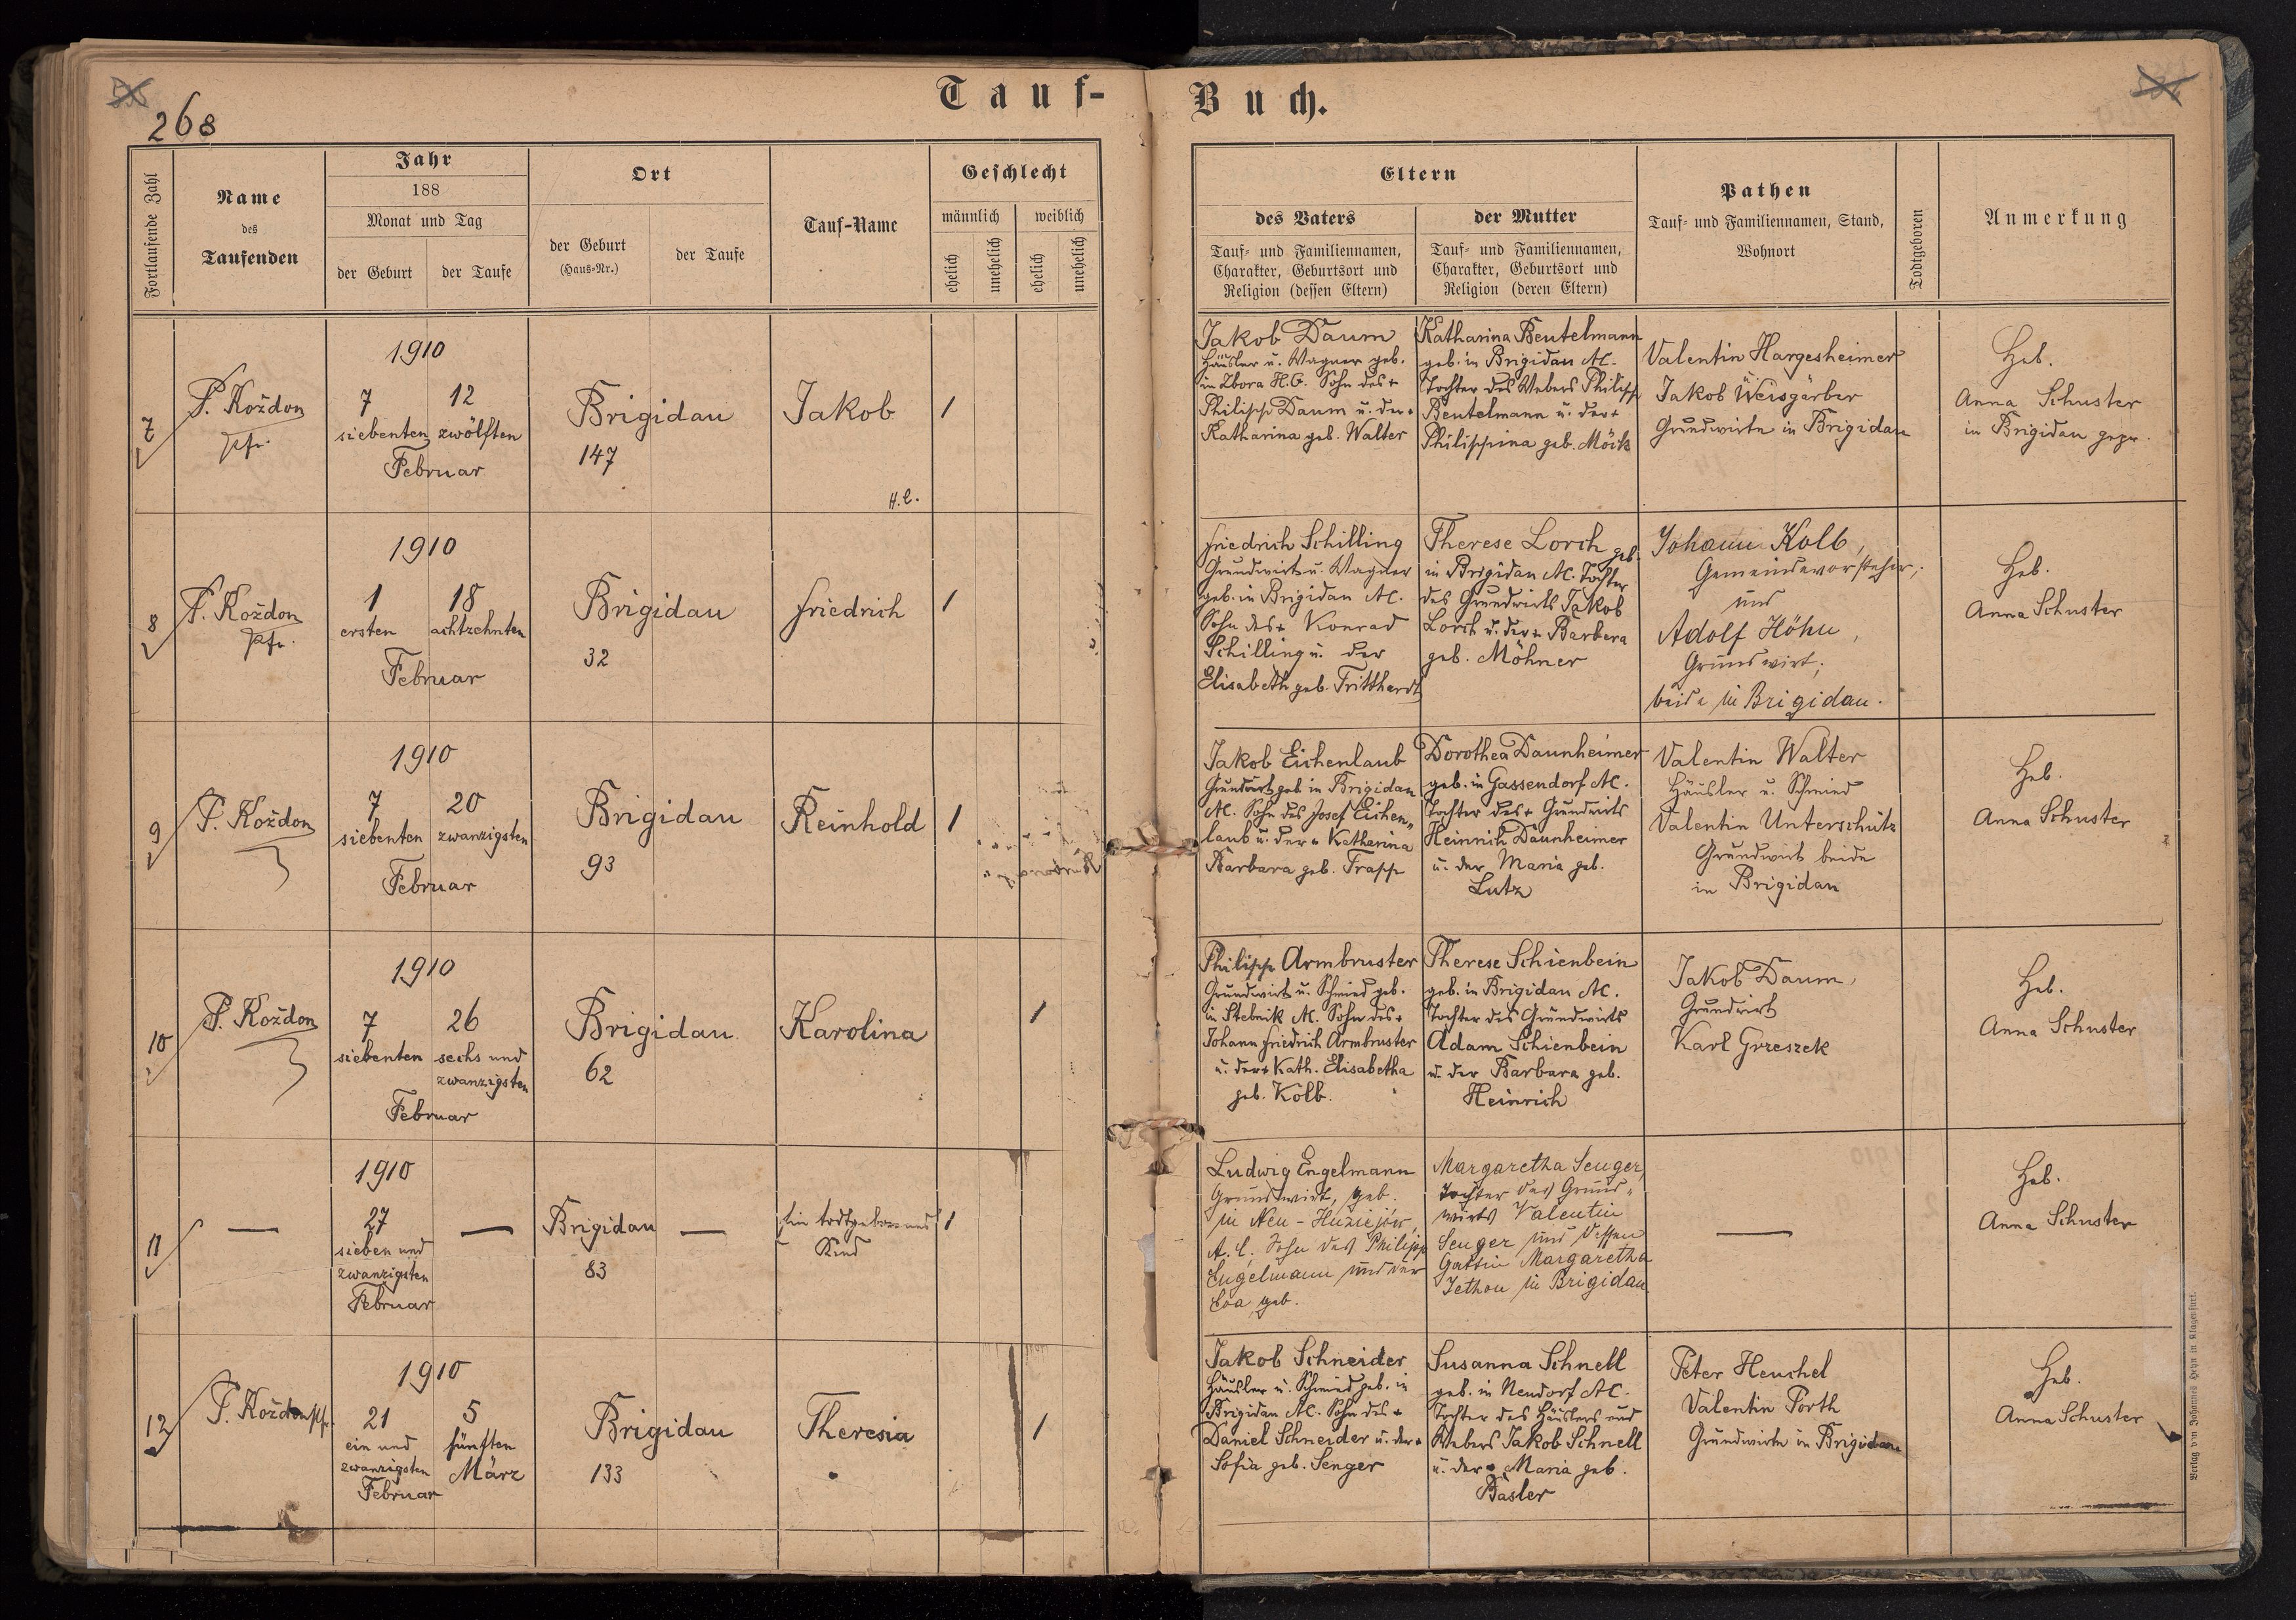 268
Tauf-Buch.
Fortlaufende Zahl
Name
des
Taufenden
Jahr
188
Monat und Tag
der Geburt
der Taufe
Ort
der Geburt
(Haus-Nr.)
der Taufe
Tauf-Name
Geschlecht
männlich
weiblich
ehelich
unehelich
ehelich
unehelich
Eltern
des Vaters
Tauf- und Familiennamen,
Charakter, Geburtsort und
Religion (dessen Eltern)
der Mutter
Tauf- und Familiennamen,
Charakter, Geburtsort und
Religion (deren Eltern)
Pathen
Tauf- und Familiennamen, Stand,
Wohnort
Todtgeboren
Anmerkung
7
P. Koždon
pfr.
1910
7 12
siebenten zwölften
Februar
Brigidau
147
Jakob
H.C.
1
Jakob Daum
Häusler u. Wagner geb.
in Zbora H.G. Sohn des +
Philipp Daum u. der +
Katharina geb. Walter
Katharina Beutelmann
geb. in Brigidau AC.
Tochter des Webers Philipp
Beutelmann u. der +
Philippina geb. Möik
Valentin Hargesheimer
Jakob Weisgärber
Grundwirte in Brigidau
Heb.
Anna Schuster
in Brigidau gepr.
8
P. Koždon
pfr.
1910
1 18
ersten achtzehnten
Februar
Brigidau
32
Friedrich
1
Friedrich Schilling
Grundwirt u. Wagner
geb. in Brigidau AC.
Sohn des + Konrad
Schilling u. der
Elisabeth geb. Tritthardt
Therese Lorch geb.
in Brigidau AC. Tochter
des Grundwirts Jakob
Lorch u. der + Barbera
geb. Möhner
Johann Kolb,
Gemeindevorsteher,
und
Adolf Höhn,
Grundwirt;
beide in Brigidau.
Heb.
Anna Schuster
9
P. Koždon
1910
7 20
siebenten zwanzigsten
Februar
Brigidau
93
Reinhold
1
Jakob Eichenlaub
Grundwirt geb in Brigidau
AC. Sohn des Josef Eichen-
laub u. der + Katharina
Barbara geb. Trapp
Dorothea Daunheimer
geb. in Gassendorf AC.
Tochter des + Grundwirts
Heinrich Daunheimer
u. der Maria geb.
Lutz
Valentin Walter
Häusler u. Schmied
Valentin Unterschütz
Grundwirt beide
in Brigidau
Heb.
Anna Schuster
10
P. Koždon
1910
7 26
siebenten sechs und
zwanzigsten
Februar
Brigidau
62
Karolina
1
Philipp Armbruster
Grundwirt u. Schmied geb.
in Stebnik AC. Sohn des +
Johann Friedrich Armbruster
u. der + Kath. Elisabetha
geb. Kolb.
Therese Schienbein
geb. in Brigidau AC.
Tochter des Grundwirts
Adam Schienbein
u. der Barbara geb.
Heinrich
Jakob Daum,
Grundwirt
Karl Grzeszek
Heb.
Anna Schuster
11
—
1910
27 —
sieben und
zwanzigsten
Februar
Brigidau —
83
Ein todtgeborenes
Kind
1
Ludwig Engelmann
Grundwirt, geb.
in Neu-Huziejów,
A.C. Sohn des Philipp
Engelmann und der
Eva, geb.
Margaretha Senger,
Tochter des Grund-
wirts Valentin
Senger und dessen
Gattin Margaretha
Jethon in Brigidau
—
Heb.
Anna Schuster
12
P. Koždon pfr.
1910
21 5
ein und fünften
zwanzigsten März
Februar
Brigidau
133
Theresia
1
Jakob Schneider
Häusler u. Schmied geb. in
Brigidau AC. Sohn des +
Daniel Schneider u. der +
Sofia geb. Senger
Susanna Schnell
geb. in Neudorf AC.
Tochter des Häuslers und
Webers Jakob Schnell
u. der + Maria geb.
Basler
Peter Henschel
Valentin Porth
Grundwirte in Brigidau
Heb.
Anna Schuster
Verlag von Johannes Heyn in Klagenfurt.